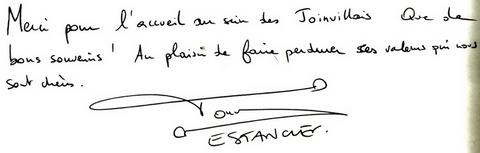 Merci pour l'accueil au sein des Joinvillais Que de
bons souvenirs ! Au plaisir de faire perdurer ses valeurs qui nous
sont chères.